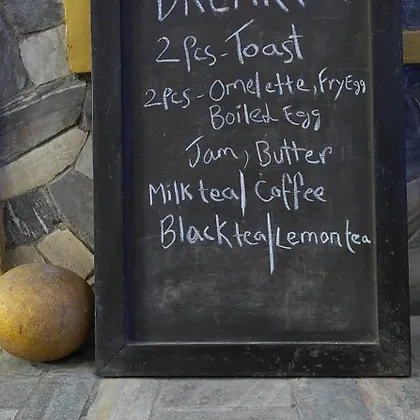 2 Pcs - Toast
2 Pcs - Omelette, Fry Egg
Boiled Egg
Jam, Butter
Milk tea/ Coffee
Black tea/Lemon tea